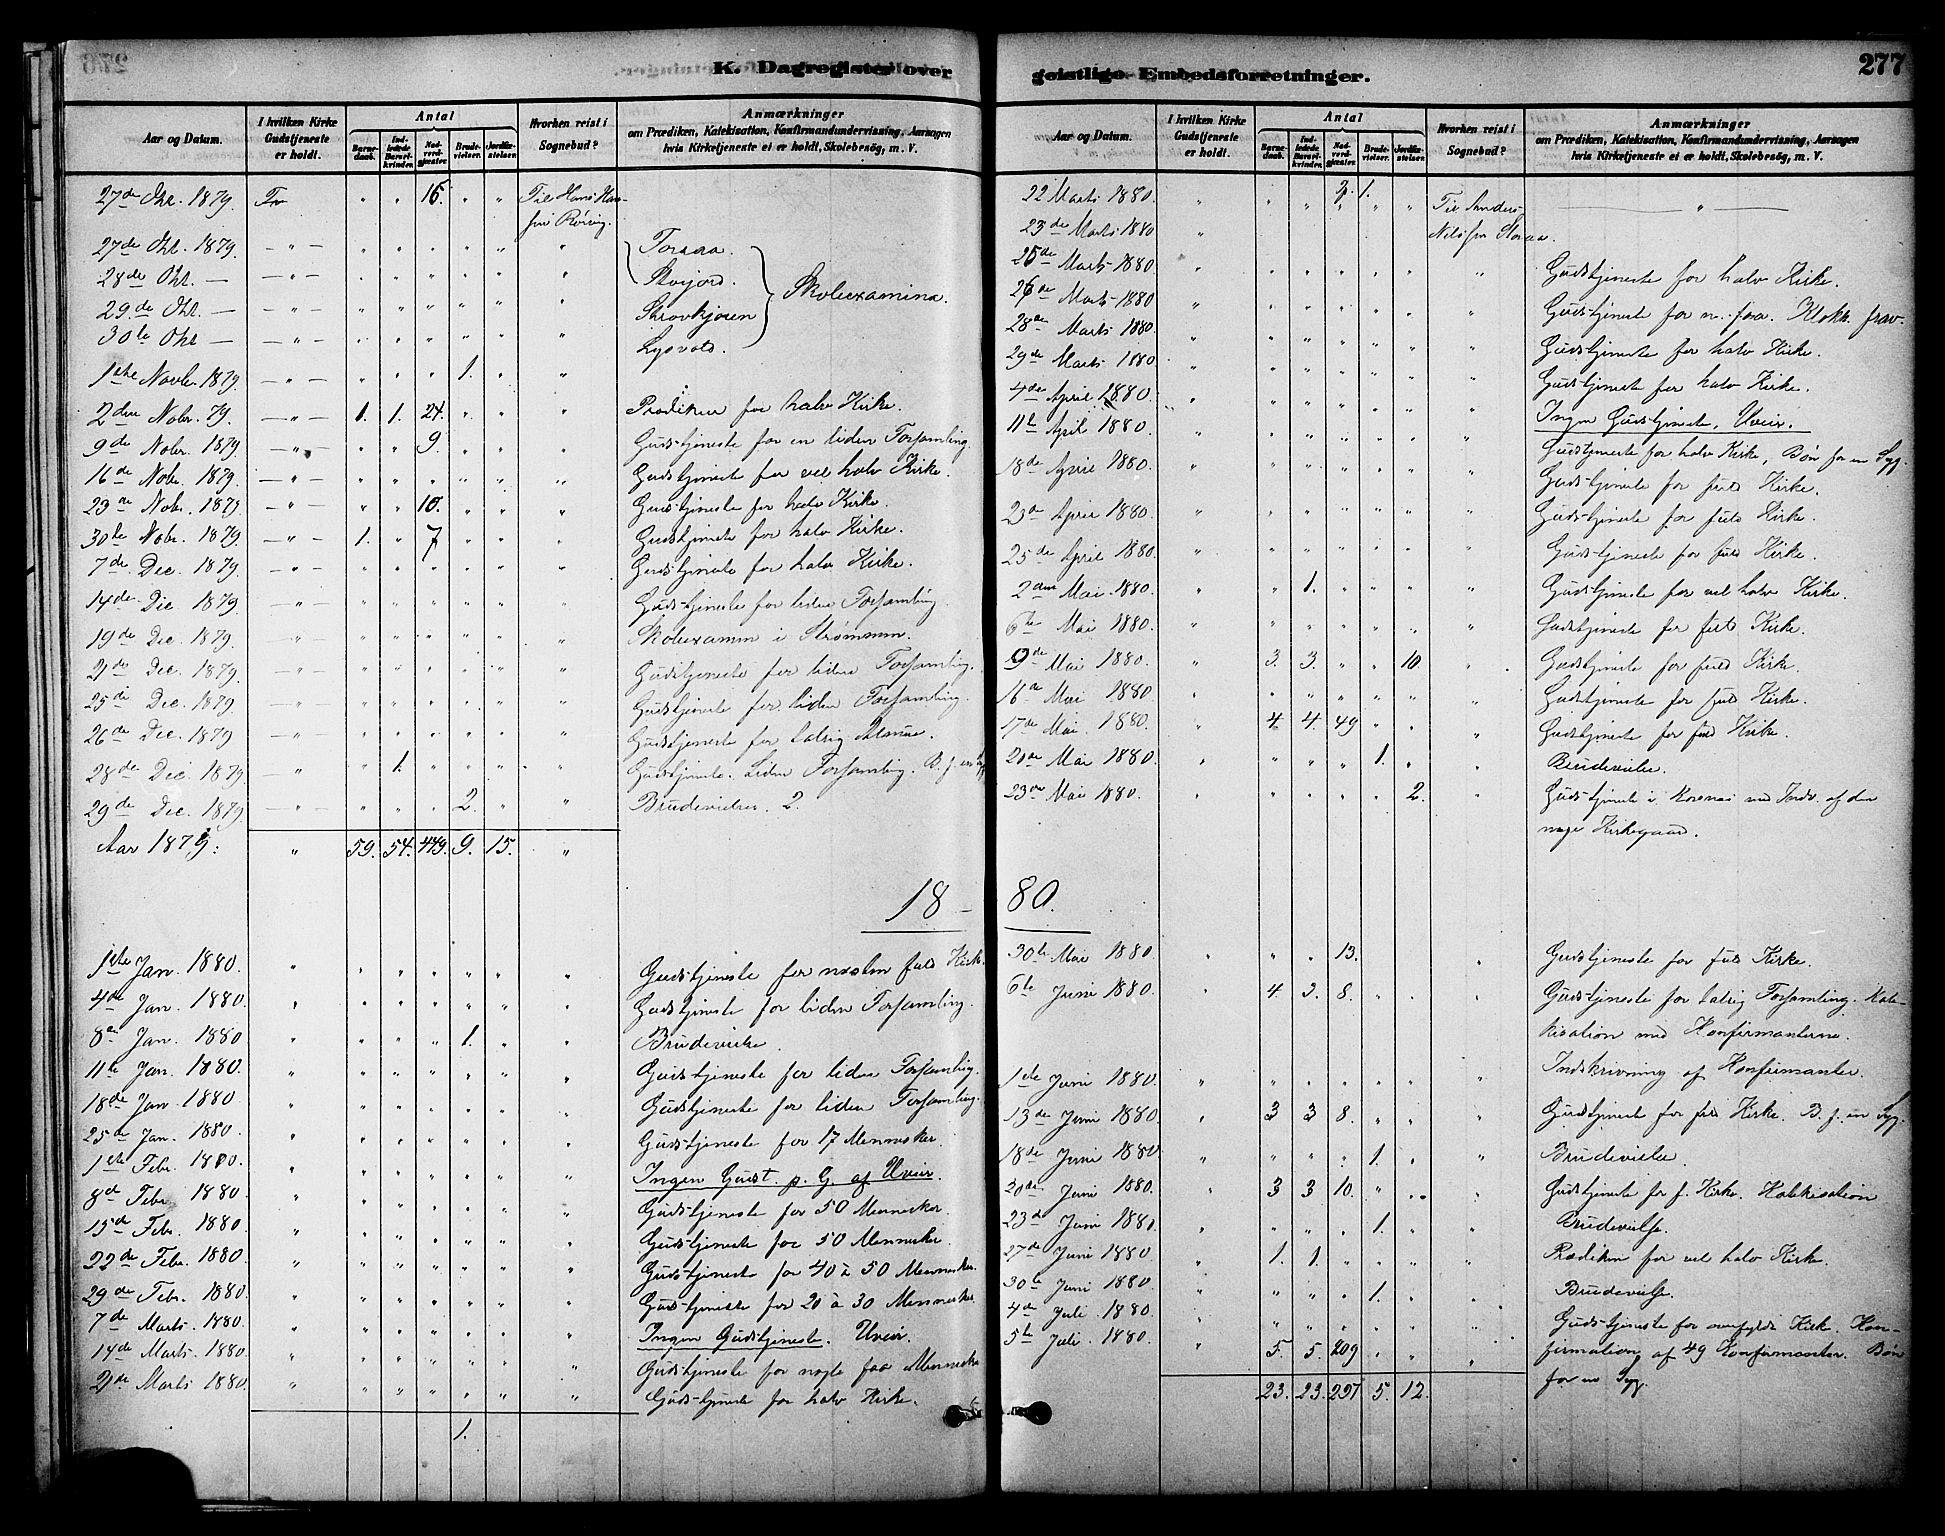 K. Dagregister over
Aar og Datum.
I hvilken Kirke Gudstjeneste er holdt.
Antal
Barnedaab.
Indledede Barselkvinder.
Nadverdgjester.
Brudevielser.
Jordfæstelser.
Hvorhen reist i Sognebud?
Anmærkninger
om Prædiken, Katekisation, Konfirmandundervisning, Aarsagen
hvis Kirketjeneste ei er holdt, Skolebesøg, m. V.
27de Okt. 1879. " " 16. " " Til Hans
27de Okt. 1879. — " — " " " " " "
28de Okt. — — " — " " " " " "
29de Okt. — — " — " " " " " "
30te Okt — — " — " " " " " " Skoleexamina.
1ste Novbr. 1879. — " — " " " 1. " "
2den Nobr. 79. — " — 1. 1. 24. " " " Prædiken for halv Kirke.
9de Nobr. 1879. — " — " " 9. " " " Gudstjeneste for en liden Forsamling.
16de Nobr. 1879. — " — " " " " " " Gudstjeneste for vel halv Kirke.
23de Nobr. 1879. — " — " " 10. " " " Gudstjeneste for halv Kirke.
30te Nobr. 1879. — " — 1. " 7 " " " Gudstjeneste for halv Kirke.
7de Dec. 1879. — " — " " " " " " Gudstjeneste for halv Kirke.
14de Dec. 1879. — " — " " " " " " Gudstjeneste for liden Forsamling.
19de Dec. 1879. — " — " " " " " " Skoleexamen i Strømmen.
21de Dec. 1879. — " — " " " " " " Gudstjeneste for liden Forsamling.
25de Dec. 1879. — " — " " " " " " Gudstjeneste for liden Forsamling.
26de Dec. 1879 — " — " " " " " " Gudstjeneste for talrig Almue.
28de Dec. 1879. — " — " 1. " " " " Gudstjeneste. Liden Forsamling. B. f.
29de Dec. 1879. — " — " " " 2. " " Brudevielser. 2.
Aar 1879: " 59. 54. 449. 9. 15. "
18 —
1ste Jan. 1880. " " " " " " " Gudstjeneste for næsten fuld Kirk.
4de Jan. 1880. " " " " " " " Gudstjeneste for liden Forsamling.
8de Jan. 1880 " " " " 1. " " Brudevielse.
11te Jan. 1880. " " " " " " " Gudstjeneste for liden Forsamling.
18de Jan 1880 " " " " " " " Gudstjeneste for liden Forsamling.
25de Jan. 1880. " " " " " " " Gudstjeneste for 17 Mennesker.
1ste Febr. 1880. " " " " " " " Ingen Gudst. p. G. af Uveir.
8de Febr 1880 " " " " " " " Gudstjeneste for 50 Mennesker.
15de Febr. 1880 " " " " " " " Gudstjeneste for 50 Menneske.
22de Febr. 1880 " " " " " " " Gudstjeneste for 40 à 50 Mennesker.
29de Febr. 1880. " " " " " " " Gudstjeneste for 20 à 30 Mennesker.
7de Marts. 1880. " " " " " " " Ingen Gudstjeneste. Uveir.
14de Marts. 1880. " " " " " " " Gudstjeneste for nogle faa Menneske
21de Marts 1880. " " " " " " " Gudstjeneste for halv Kirke.
1.
geistlige Embedsforretninger.
277
Aar og Datum.
I hvilken Kirke Gudstjeneste er holdt.
Antal
Barnedaab.
Indledede Barselkvinder.
Nadverdgjester.
Brudevielser.
Jordfæstelser.
Hvorhen reist i Sognebud?
Anmærkninger
om Prædiken, Katekisation, Konfirmandundervisning, Aarsagen
hvis Kirketjeneste ei er holdt, Skolebesøg, m. V.
22 Marts 1880. " " " 1. Til Anders
23de Marts 1880 "
25de Marts 1880 " " " " " " " Gudstjeneste for halv Kirke.
26de Marts 1880 " " " " " " " Gudstjeneste for n. faa. Klokk. frav.
28de Marts 1880. " " " " " " " Gudstjeneste for halv Kirke.
29de Marts 1880. " " " " " " " Gudstjeneste for halv Kirke.
4de April 1880. " " " " " " " Ingen Gudstjeneste. Uveir.
11te April 1880. " " " " " " " Gudstjeneste for halv Kirke, Bøn for en Syg.
18de April 1880. " " " " " " " Gudstjeneste for fuld Kirke.
23de April 1880. " " " " " " " Gudstjeneste for fuld Kirke.
25de April 1880. " " " " " " " Gudstjeneste for fuld Kirke.
2den Mai. 1880. " " 1. " " " " Gudstjeneste for vel halv Kirke.
6te Mai 1880. " " " " " " " Gudstjeneste for fuld Kirke.
9de Mai 1880. " 3. 3. " " 10. " Gudstjeneste for fuld Kirke.
16de Mai 1880. " " " " " " " Gudstjeneste for fuld Kirke.
17de Mai 1880. " 4. 4. 49 " " " Gudstjeneste for fuld Kirke.
20de Mai 1880. " " " " 1. " " Brudevielse.
23de Mai 1880. " " " " " 2. " Gudstjeneste i Korsnæs med Indv. af den
nye Kirkegaard.
80.
30te Mai 1880. " " " 13. " Gudstjeneste for fuld Kirke.
6te Juni 1880. " 4. 3. 8. " " " Gudstjeneste for talrig Forsamling. Kate-
kisation med Konfirmanterne.
1ste Juni 1880. " " " " " " " Indskrivning af Konfirmanter.
13de Juni 1880 " 3 3 8. " " " Gudstjeneste for fuld Kirke. B. f. en Syg.
18de Juni 1880 " " " " 1. " " Brudevielse.
20de Juni 1880. " 3 3 10. " " " Gudstjeneste for f. Kirke. Katekisation
23de Juni 1880. " " " " 1. " " Brudevielse.
27de Juni 1880 " 1. 1. " " " " Prædiken for vel halv Kirke.
30te Juni 1880. " " " " 1. " " Brudevielse.
4de Juli 1880. " " " " " " " Gudstjeneste for overfyldt Kirke. Kon-
5te Juli 1880. " 5. 5. 209 " " " firmation af 49 Konfirmanter. Bøn
23. 23. 297 5. 12. for en Syg.